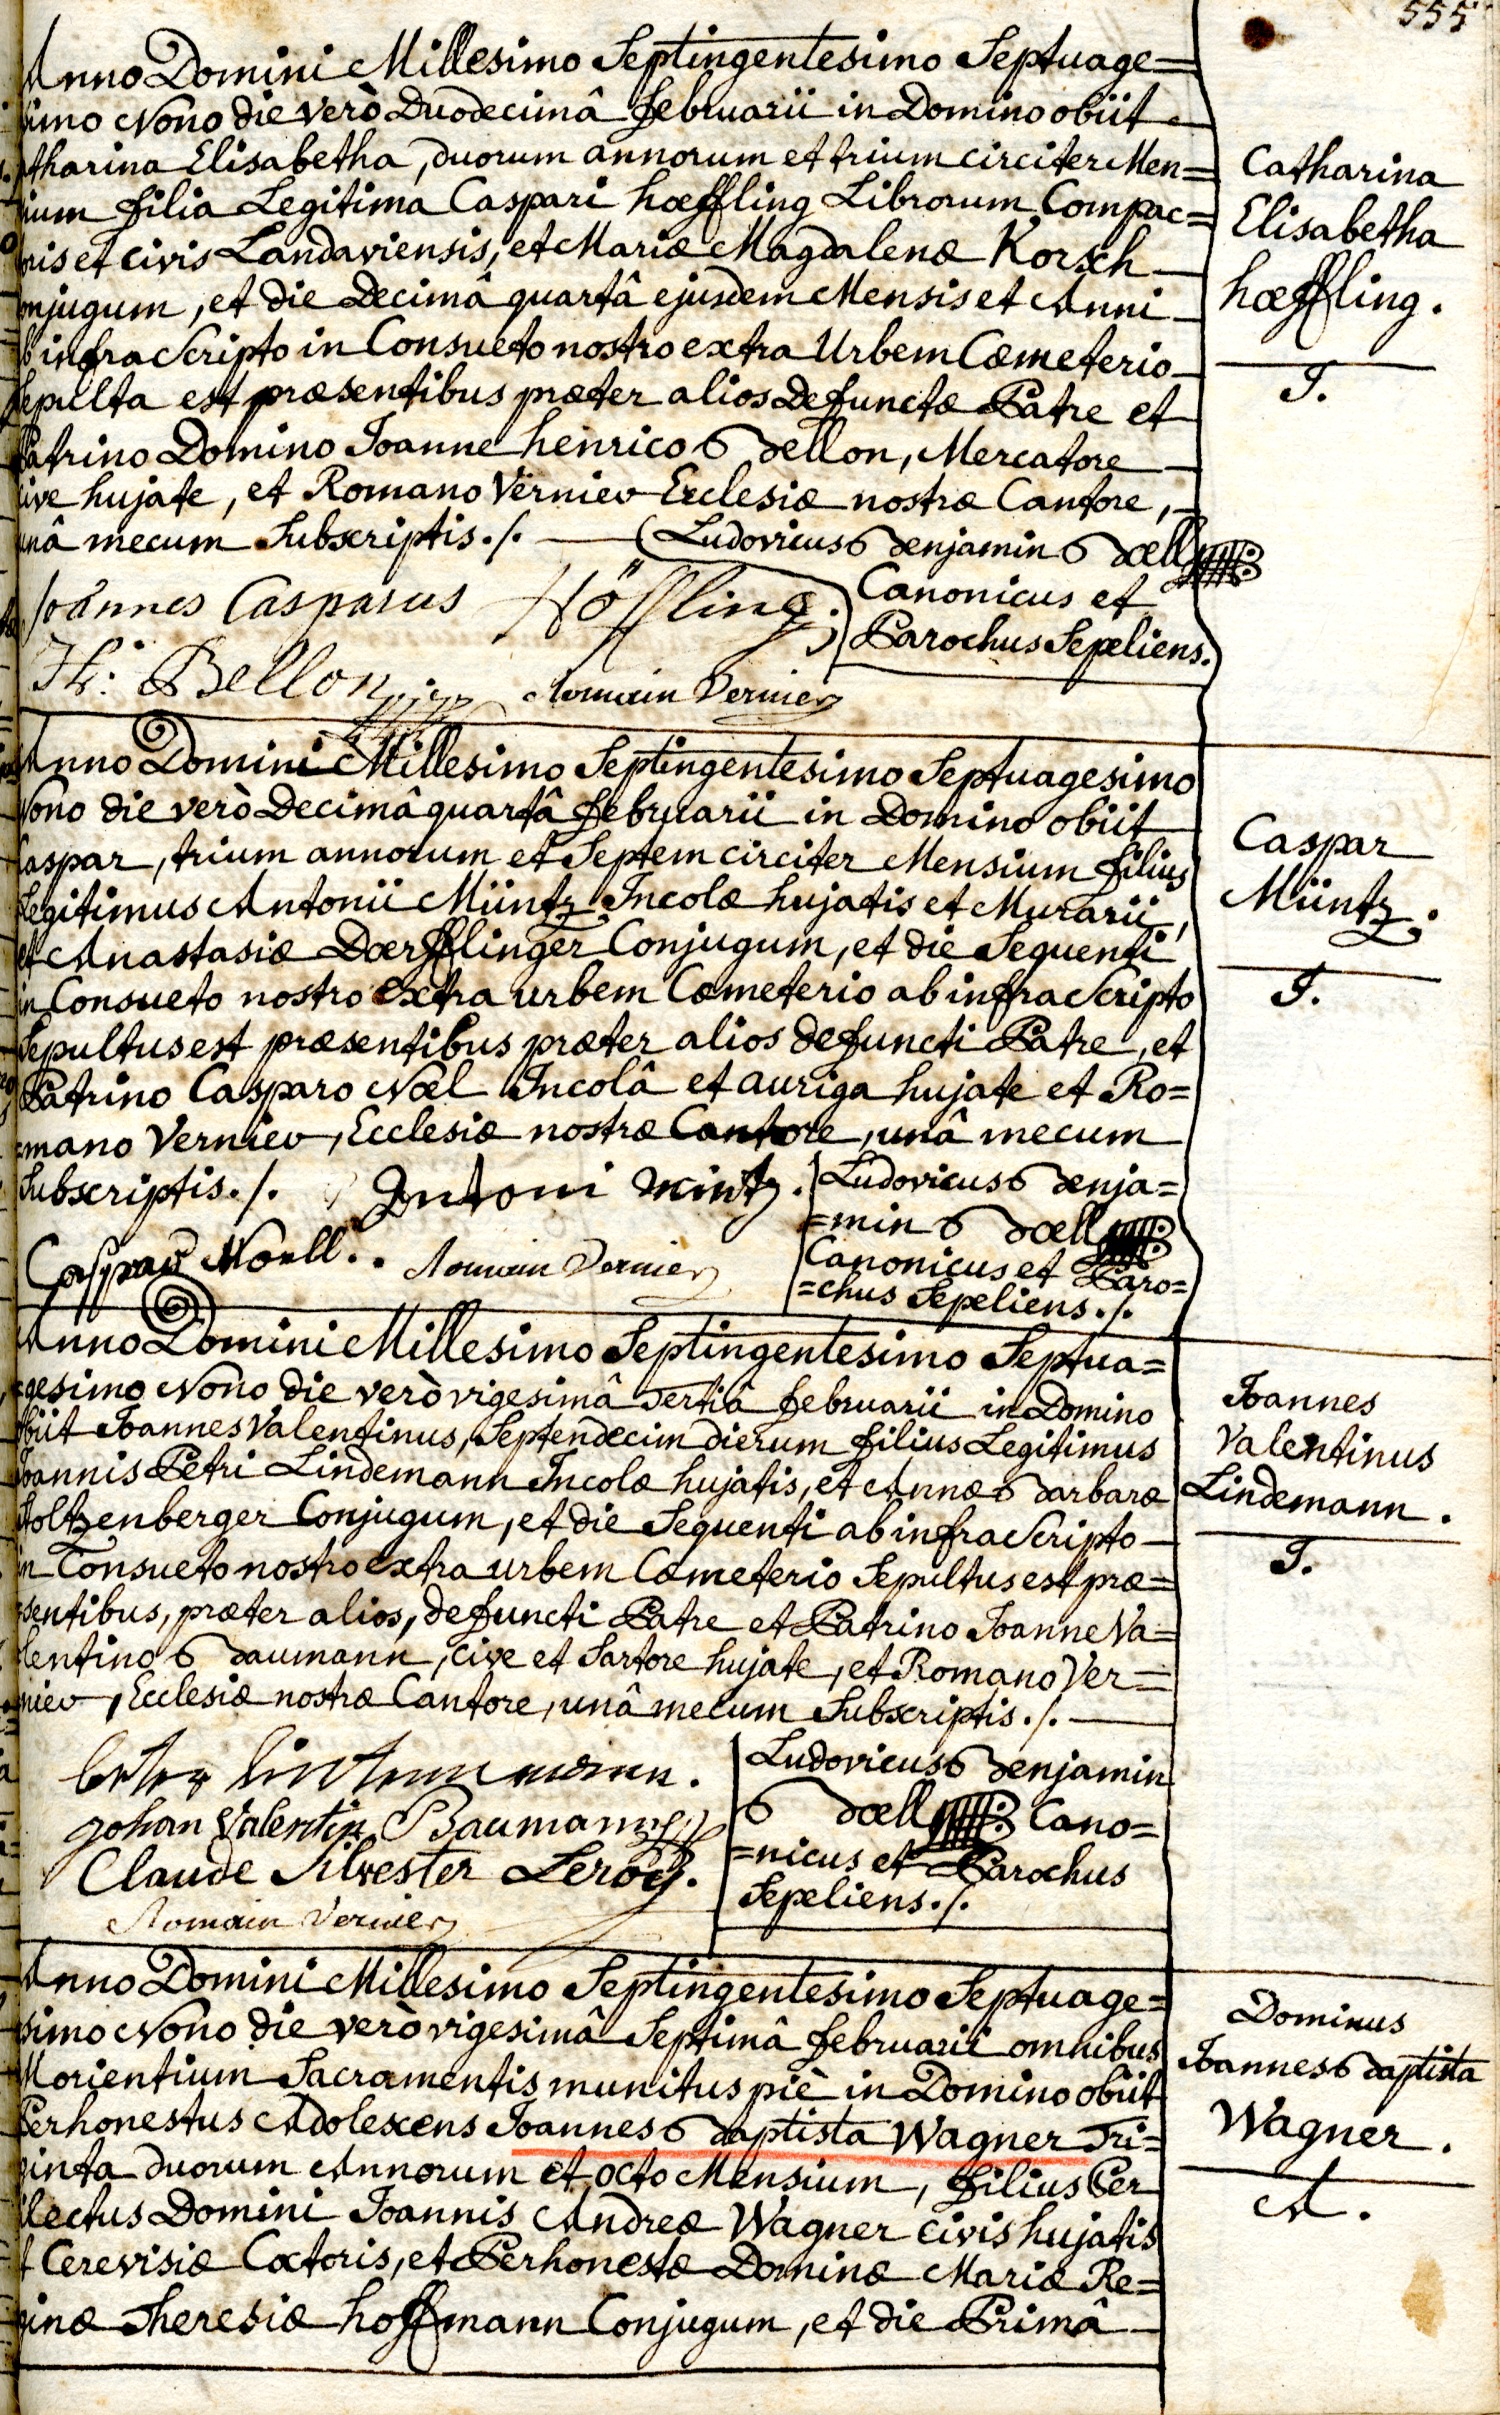 555
Anno Domini Millesimo Septingentesimo Septuage=
simo Nono die verò Duodecimâ februarii in Domino obiit
Catharina Elisabetha, duorum annorum et trium circiter Men=
sium filia Legitima Caspari hœffling Librorum Compac=
toris et civis Landaviensis, et Mariæ Magdalenæ Korsch
Conjugum, et die Decimâ quartâ ejusdem Mensis et Anni
ab infra Scripto in Consueto nostro extra Urbem Cœmeterio
Sepulta est præsentibus præter alios Defunctæ Patre et
Patrino Domino Joanne henrico Bellon, Mercatore
Cive hujate, et Romano Vernier Ecclesiæ nostræ Cantore,
unâ mecum Subscriptis ./.
Catharina
Elisabetha
hœffling.
J.
Ludovicus Benjamin Bœll
Canonicus et
Parochus Sepeliens.
Joannes Casparus Höffling.
H: Bellon
Romain Vernier
Anno Domini Millesimo Septingentesimo Septuagesimo
Nono die verò Decimâ quartâ februarii in Domino obiit
Caspar, trium annorum et Septem circiter Mensium filius
Legitimus Antonii Müntz Incolæ hujatis et Murarii,
et Anastasiæ Dœrfflinger Conjugum, et die Sequenti
in Consueto nostro extra urbem Cœmeterio ab infra Scripto
Sepultus est præsentibus præter alios defuncti Patre, et
Patrino Casparo Noel Incolâ et auriga hujate et Ro=
=mano Vernier, Ecclesiæ nostræ Cantore, unâ mecum
Subscriptis ./.
Caspar
Müntz.
J.
Antoni Mintz.
Caspar Noell.
Romain Vernier
Ludovicus Benja=
=min Bœll
Canonicus et Paro=
=chus Sepeliens ./.
Anno Domini Millesimo Septingentesimo Septua=
=gesimo Nono die verò vigesimâ Tertiâ februarii in Domino
obiit Joannes Valentinus, Septendecim dierum filius Legitimus
Joannis Petri Lindemann Incolæ hujatis, et Annæ Barbaræ
Holtzenberger Conjugum, et die Sequenti ab infra Scripto
in Consueto nostro extra urbem Cœmeterio Sepultus est præ=
=sentibus, præter alios, defuncti Patre et Patrino Joanne Va=
lentino Baumann, cive et Sartore hujate, et Romano Ver=
nier, Ecclesiæ nostræ Cantore, unâ mecum Subscriptis ./.
Joannes
Valentinus
Lindemann.
J.
Johan Valentin Baumann
Claude Silvester Leroy.
Romain Vernier
Ludovicus Benjamin
Bœll Cano=
=nicus et Parochus
Sepeliens ./.
Anno Domini Millesimo Septingentesimo Septuage=
simo Nono die verò vigesimâ Septimâ februarii omnibus
Morientium Sacramentis munitus piè in Domino obiit
Perhonestus Adolescens Joannes Baptista Wagner Tri=
ginta duorum Annorum et octo Mensium, filius Per
dilectus Domini Joannis Andreæ Wagner civis hujatis
et Cerevisiæ Coctoris, et Perhonestæ Dominæ Mariæ Re=
ginæ Theresiæ hoffmann Conjugum, et die Primâ
Dominus
Joannes Baptista
Wagner.
A.